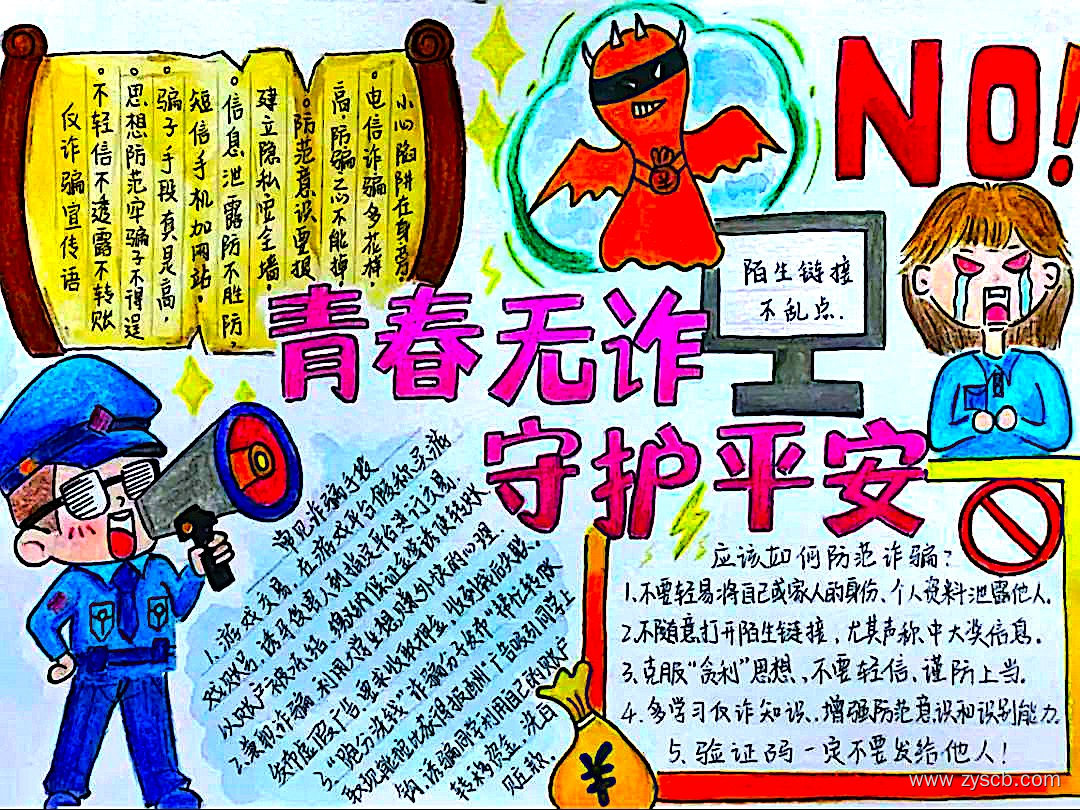 小心陷阱在身旁
。电信诈骗多花样
高，防骗之心不能掉
。防范意识要提
建立隐私安全墙，
。信息泄露防不胜防，
短信手机加网站，
骗子手段真是高，
。思想防范牢骗子不得逞
。不轻信不透露不转账
反诈骗宣传语
NO!
陌生链接
不乱点.
青春无诈
守护平安
常见诈骗手段
1.游戏交易，在游戏平台假称买游
戏账号，诱导受害人到指定平台进行交易.
以账户被冻结，缴纳保证金等诱使转账
2.兼职诈骗，利用大学生想赚外快的心理.
发布虚假广告，要求收取押金，收到钱后失联。
3."跑分洗钱"诈骗分子发布"帮忙转账
取现就能地获得报酬"广告吸引同学上
钩，诱骗同学利用自己的账户
转移资金，洗白
赃款.
应该如何防范诈骗?
1.不要轻易将自己或家人的身份、个人资料泄露他人.
2.不随意打开陌生链接，尤其声称中大奖信息.
3.克服"贪利"思想、不要轻信、谨防上当.
4.多学习反诈知识、增强防范意识和识别能力.
5.验证码一定不要发给他人！
¥
www.zyscb.com